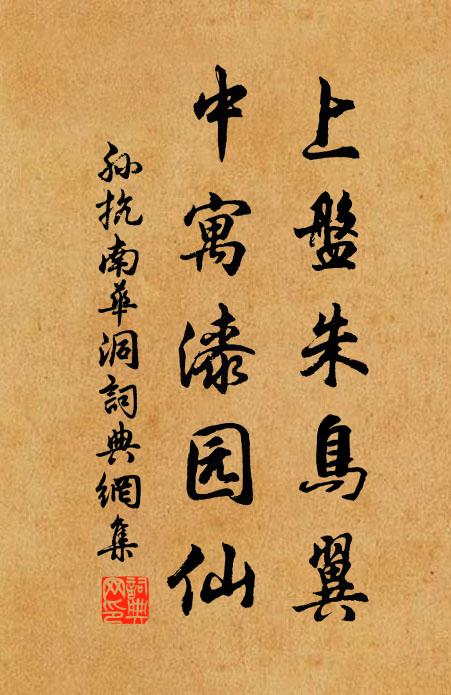 上盤朱鳥翼
中寓漆园仙
孙抗南華洞詞典網集
詞典网印